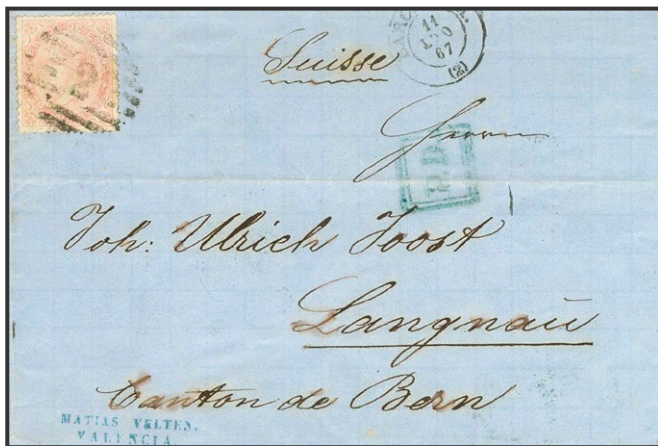 11
67
(2)
Suisse
Herrn
P.D.
Joh: Ulrich Joost
Langnau
Canton de Bern
MATIAS VELTEN.
VALENCIA.